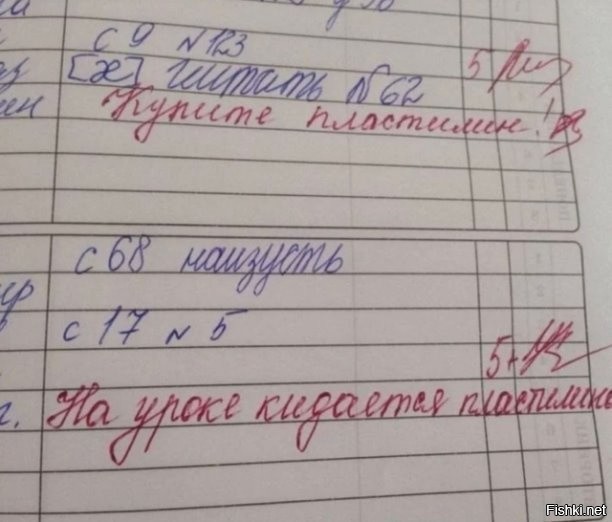 с 9 №123
[æ] читать №62 5
Купите пластилин!
с 68 наизусть
с 17 № 5
5+
На уроке кидается пластилине
Fishki.net